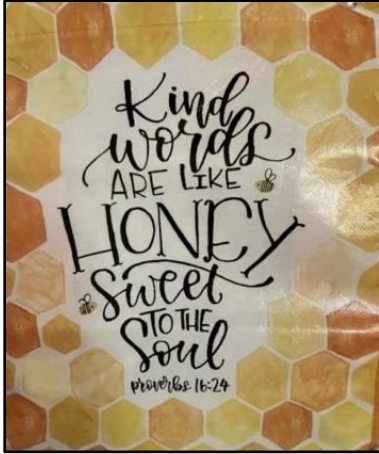 Kind
words
ARE LIKE
HONEY
Sweet
TO THE
Soul
proverbs 16:24